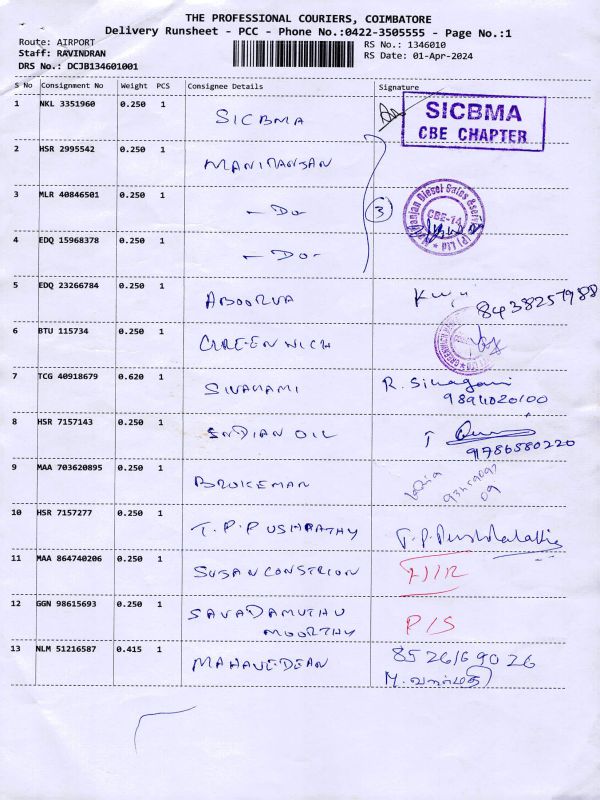 THE PROFESSIONAL COURIERS, COIMBATORE
Delivery Runsheet - PCC - Phone No.:0422-3505555 - Page No.:1
Route: AIRPORT
RS No.: 1346010
Staff: RAVINDRAN
RS Date: 01-Apr-2024
DRS No.: DCJB134601001
S No Consignment No Weight PCS Consignee Details Signature
1 NKL 3351960 0.250 1 SICBMA
SICBMA
CBE CHAPTER
2 HSR 2995542 0.250 1 MANIRANJAN
3 MLR 40846501 0.250 1 - Do - 3
Diesel Sales &
(P) Ltd
CBE-14
4 EDQ 15968378 0.250 1 - Do -
5 EDQ 23266784 0.250 1 ABOORVA
8438257988
6 BTU 115734 0.250 1 GREENWICH
7 TCG 40918679 0.620 1 SIVAHAMI R. Sivagami
9894020100
8 HSR 7157143 0.250 1 INDIAN OIL
9786580220
9 MAA 703620895 0.250 1 BROKEMAN
10 HSR 7157277 0.250 1 T.P.PUSHPATHY T.P.
11 MAA 864740206 0.250 1 SUSAN CONSTRION
12 GGN 98615693 0.250 1 SAVADAMUTHU
MOORTHY P/S
13 NLM 51216587 0.415 1 MAHAVEDEAN 8526169026
M.